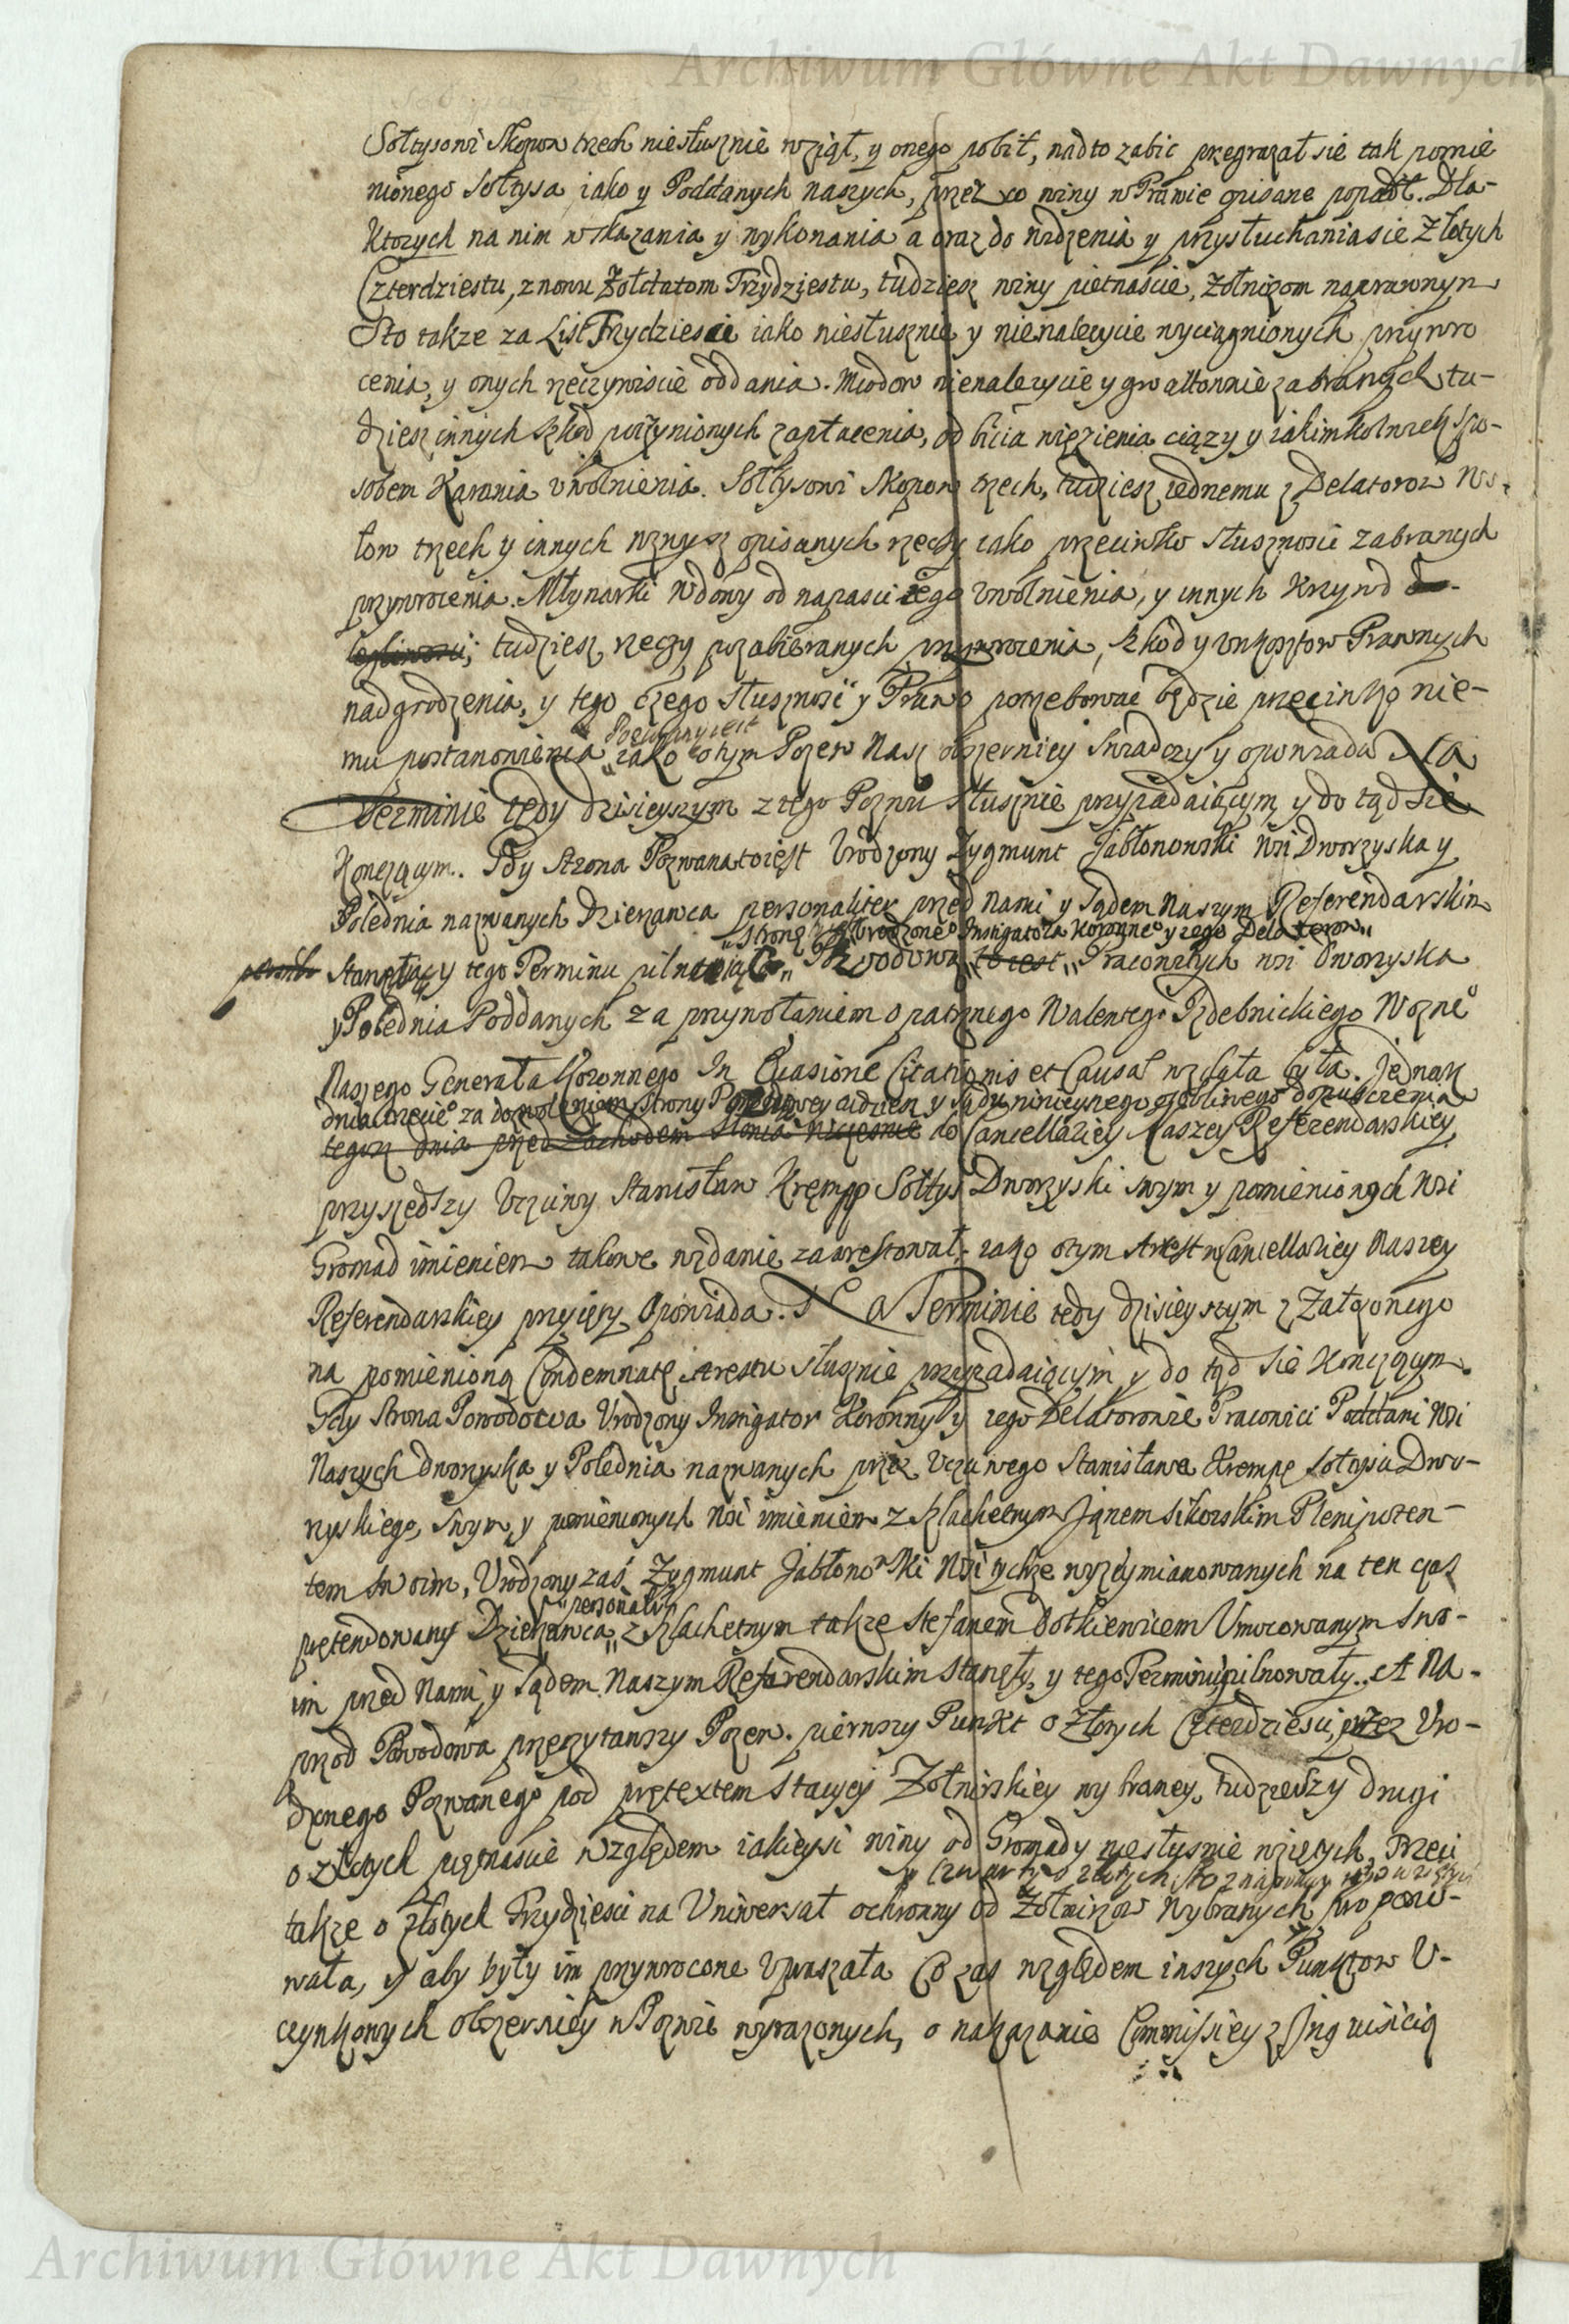 Archiwum Główne Akt Dawnych
Sołtysowi Skopow trzech niesłusznie wziął, y onego pobił, nadto zabic przegrazał sie tak pomie
nionego Sołtysa iako y Poddanych naszych, przez co winy w Prawie opisane popadł. Dla-
Ktorych na nim wskazania y wykonania a oraz do widzenia y przysłuchania sie Złotych
Czterdziestu, znowu Żołdatom Trzydziestu, tudziesz winy pietnascie, Żołnirzom naprawnym
Sto takze za List Trzydziescie iako niesłusznie y nienalezycie wyciągnionych przywro
cenia, y onych rzeczywiscie oddania. Miodow nienalezycie y gwałtownie zabranych tu-
dziesz innych szkod poczynionych zapłacenia, od bicia więzienia ciązy y iakimkolwiek spo-
sobem Karania uwolnienia. Sołtysowi Skopow trzech, tudziesz iednemu z Delatorow Wo-
łow trzech y innych wzwysz opisanych rzeczy iako przeciwko słusznosci zabranych
przywrocenia. Młynarki Wdowy od napasci iego uwolnienia, y innych Krzywd
tudziesz rzeczy pozabieranych przywrocenia, szkod y unkosztow Prawnych
nadgrodzenia, y tego czego słusznosc y Prawo potrzebowac będzie przeciwko nie-
mu postanowienia iako o tym Pozew Nasz obszerniey swiadczy y opowiada Na
Terminie tedy dzisieyszym z tego Pozwu słusznie przypadaiącym y do tąd sie
Konczącym. Gdy strona Pozwana to iest Urodzony Zygmunt Jabłonowski Wsi Dworzyska y
Polednia nazwanych Dzierzawca personaliter przed Nami y Sądem Naszym Referendarskim
stronę Urodzonego Instigatora Koronnego y iego Delatorow
stanąwszy y tego Terminu pilnuiąc Powodową to iest Pracowitych wsi Dworzyska
y Polednia Poddanych za przywołaniem opatrznego Walentego Izdebnickiego Woznego
Naszego Generała Koronnego In Evasione Citationis et Causae wzdała była. Jednak
dnia trzeciego za dozwoleniem strony Powodowey tudziesz y Sądu ninieyszego osobliwego dopuszczenia
tegosz dnia przed zachodem słonca wczesnie do Cancellariey Naszey Referendarskiey
przyszedszy Uczciwy Stanisław Krempp Sołtys Dworzyski swym y pomienionych Wsi
Gromad imieniem takowe wzdanie zaarestował iako o tym Arest w Cancellariey Naszey
Referendarskiey przyięty opowiada. Na Terminie tedy dzisieyszym z Załozonego
na pomienioną Condemnatę Arestu słusznie przypadaiącym y do tąd sie konczącym.
Gdy Strona Powodowa Urodzony Instigator Koronny y iego Delatorowie Pracowici Poddani Wsi
Naszych Dworzyska y Polednia nazwanych przez Uczciwego Stanisława Krempę Sołtysa Dwo-
rzyskiego, swym y pomienionych Wsi imieniem z Szlachetnym Janem Sikorskim Plenipoten-
tem swoim, Urodzony zaś Zygmunt Jabłonowski Wsi tychze wyzey mianowanych na ten czas
personaliter
pretendowany Dzierzawca z Szlachetnym takze Stefanem Dotkiewicem Umocowanym swo-
im przed Nami y Sądem Naszym Referendarskim stanęły, y tego Terminu pilnowały. A Na-
przod Powodowa przeczytawszy Pozew pierwszy Punkt o Złotych Czterdziesci, przez Uro-
dzonego Pozwanego pod pretextem stacyey Żołnirskiey wybraney, tudzieszy drugi
o złotych piętnascie względem iakieysi winy od Gromady niesłusnie wziętych, Trzeci
y czwarty o złotych sto
takze o złotych Trzydziesci na Uniwersał ochronny od Żołnirzow Wybranych, proponi-
wała, y aby były im przywrocone upraszała Co zas względem inszych Punktow U-
czynkowych obszerniey w Pozwie wyrazonych, o nakazanie Commissiey z Inquisicią
Archiwum Główne Akt Dawnych